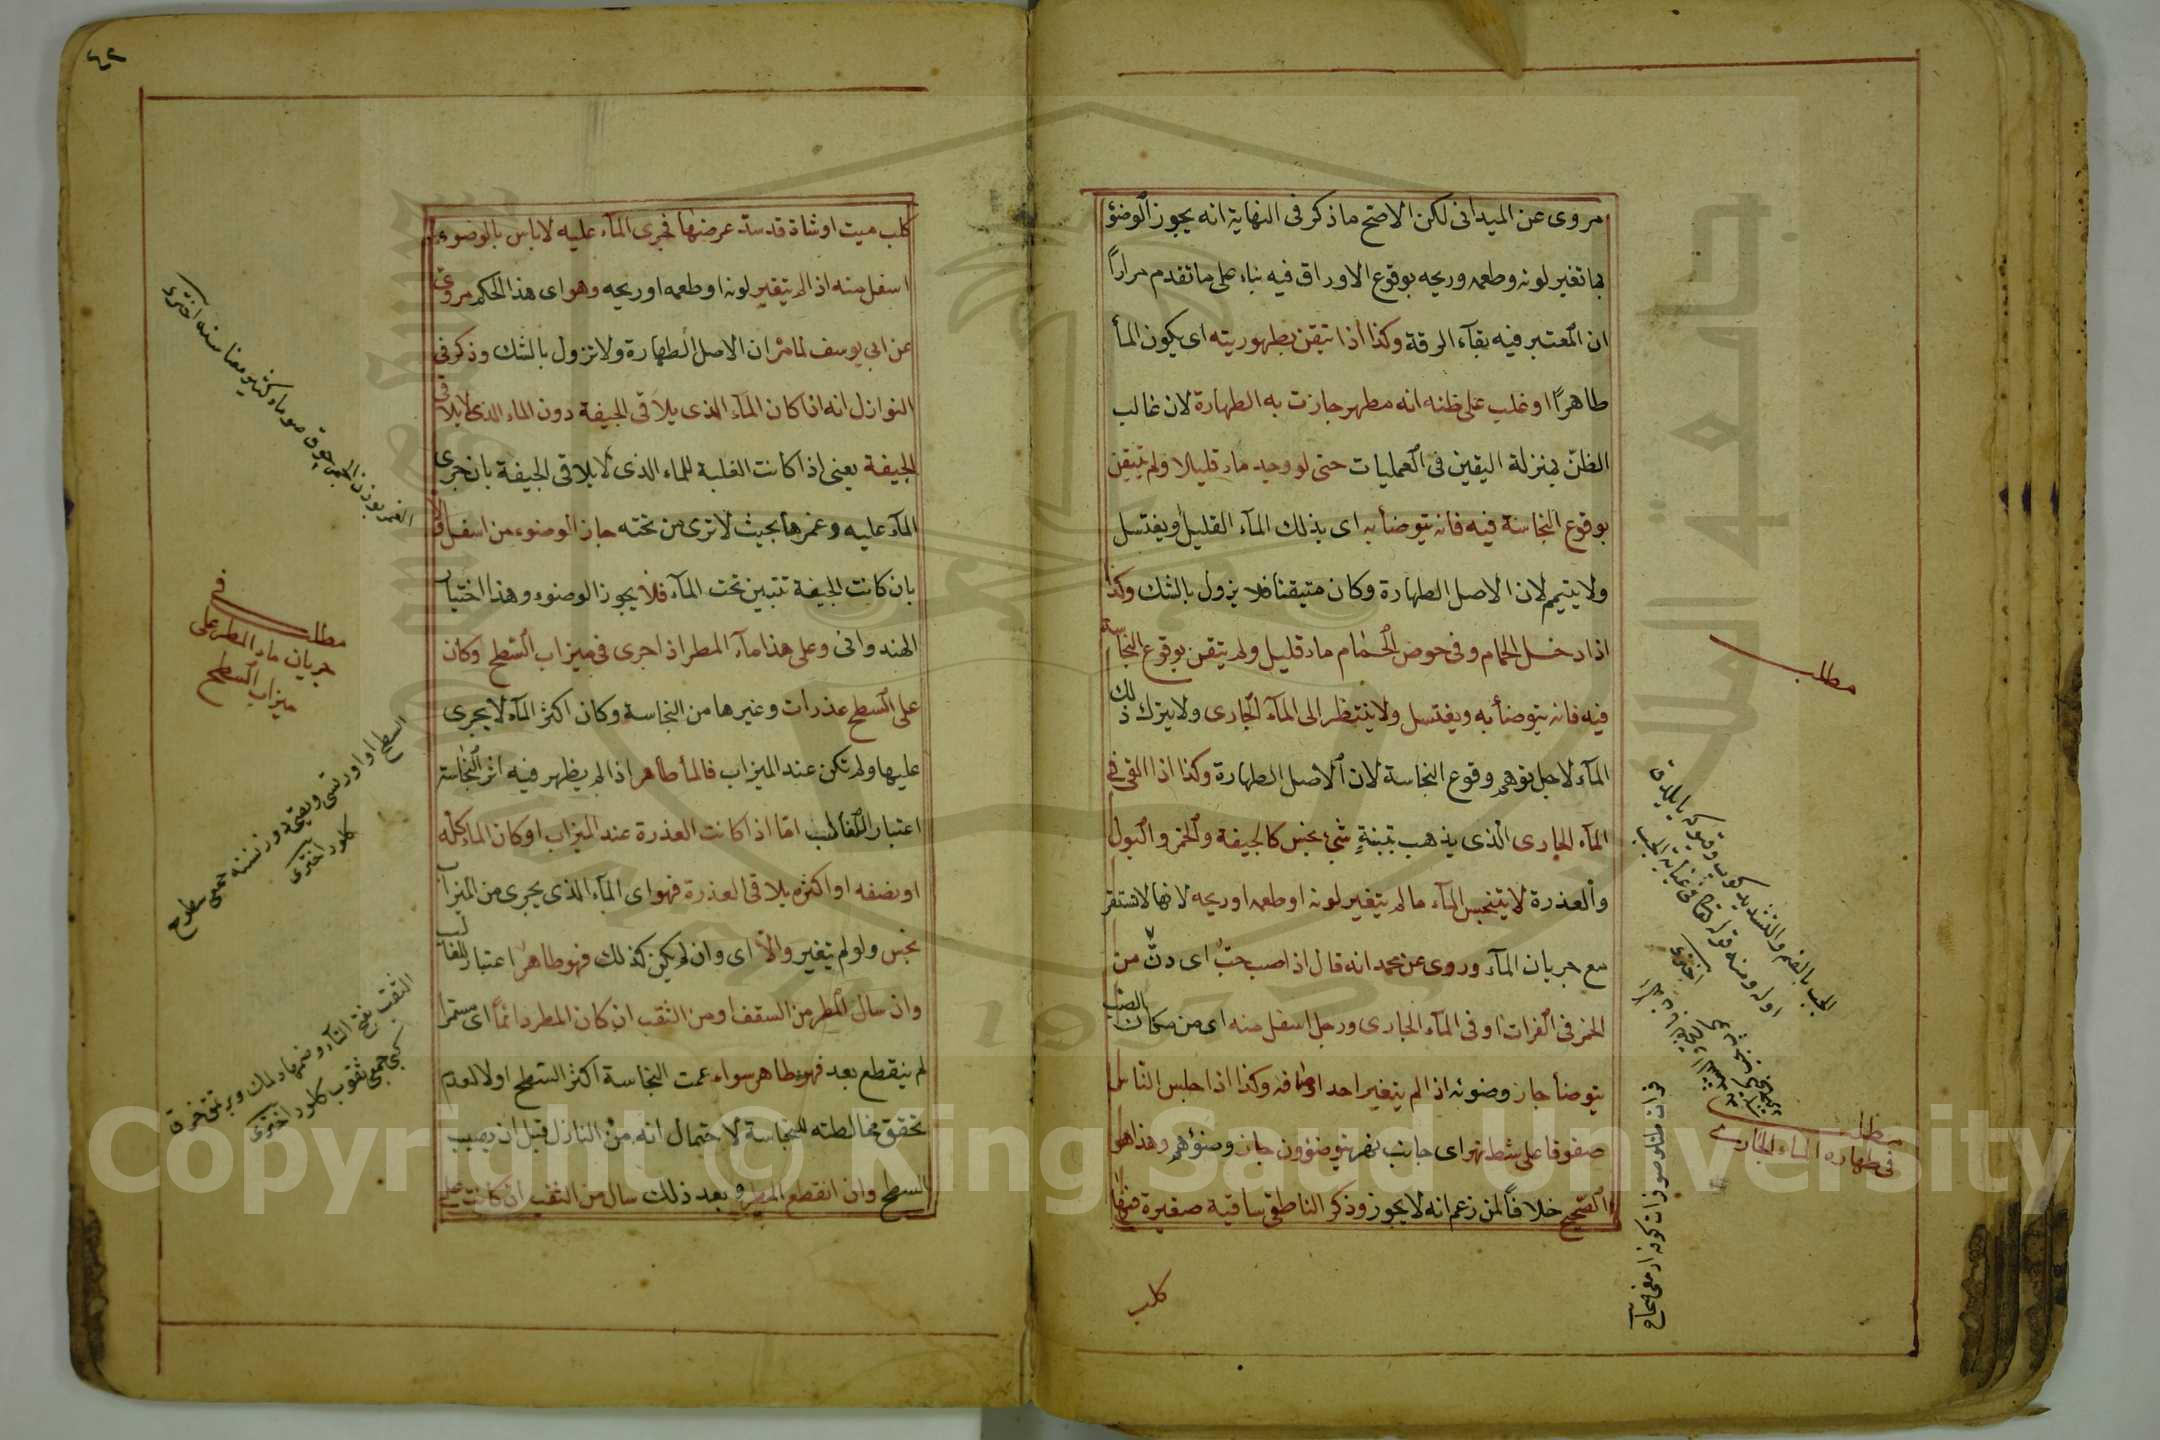 مروى عن الميدانى لكن الاصح ما ذكر فى النهاية انه يجوز الوضؤ
بما تغير لونه وطعمه وريحه بوقوع الاوراق فيه بناء على ما تقدم مراراً
ان المعتبر فيه بقآء الرقة وكذا اذا تيقن بطهوريته اى يكون المأ
طاهراً او غلب على ظنه انه مطهر جازت به الطهارة لان غالب
الظن بمنزلة اليقين فى العمليات حتى لو وجد ماء قليلا ولم تيقن
بوقوع النجاسة فيه فانه يتوضأ به اى بذلك المآء القليل ويغتسل
ولا يتيمم لان الاصل الطهارة وكان متيقنا فلا يزول بالشك وكذا
اذا دخل الحمام وفى حوض الحمام ماء قليل ولم يتقن بوقوع النجاسة
فيه فانه يتوضأ به ويغتسل ولا ينتظر الى المآء الجارى ولا يترك ذلك
المآء لاجل توهم وقوع النجاسة لان الاصل الطهارة وكذا اذا القى فى
المآء الجارى الذى يذهب بتبنةٍ شئ نجس كالجيفة والخمر والبول
والعذرة لا يتنجس المآء ما لم يتغير لونه او طعمه او ريحه لانها لا تستقر
مع جريان المآء وروى عن محمد انه قال اذا صب حب اى دنّ من
الخمر فى الفرات او فى المآء الجارى ورجل اسفل منه اى من مكان الصب
يتوضأ جاز وضوئه اذا لم يتغير احد اوصافه وكذا اذا جلس الناس
صفوفا على شط نهر اى جانب نهر يتوضؤون جاز وضؤهم وهذا هو
الصحيح خلافاً لمن زعم انه لا يجوز وذكر الناطقى ساقية صغيرة فيها
كلب
مطلب
مطلب
فى طهارة الماء الجارى
٤٢
كلب ميت او شاة قد سد عرضها فجرى المآء عليه لا باس بالوضوء
اسفل منه اذا لم يتغير لونه او طعمه او ريحه وهو اى هذا الحكم مروى
عن ابى يوسف لما مر ان الاصل الطهارة ولا تزول بالشك وذكر فى
النوازل انه اذا كان المآء الذى يلاقى الجيفة دون الماء الذى لا يلاقى
الجيفة يعنى اذا كانت الغلبة للماء الذى لا يلاقى الجيفة بان جرى
المآء عليه وغمرها بحيث لا ترى من تحته جاز الوضوء من اسفل والا
بان كانت الجيفة تتبين تحت المآء فلا يجوز الوضوء وهذا اختيار
الهندوانى وعلى هذا مآء المطر اذ اجرى فى ميزاب السطح وكان
على السطح عذرات وغيرها من النجاسة وكان اكثر المآء لا يجرى
عليها ولم تكن عند الميزاب فالمأ طاهر اذا لم يظهر فيه اثر النجاسة
اعتبار اللغالب امّا اذا كانت العذرة عند الميزاب او كان الماء كله
او نصفه او اكثره يلاقى العذرة فهو اى المآء الذى يجرى من الميزاب
نجس ولو لم يتغير والّا اى وان لم يكن كذلك فهو طاهر اعتبار للغالب
وان سال المطر من السقف او من الثقب ان كان المطر دائماً اى مستمرا
لم ينقطع بعد فهو طاهر سواء عمت النجاسة اكثر السطح او لا لعدم
تحقق مخالطته للنجاسة لاحتمال انه من النازل قبل ان يصيب
السطح وان انقطع المطر وبعد ذلك سال من الثقب ان كانت على
مطلب فى
جريان ماء المطر على
ميزاب السطح
Copyright © King Saud University